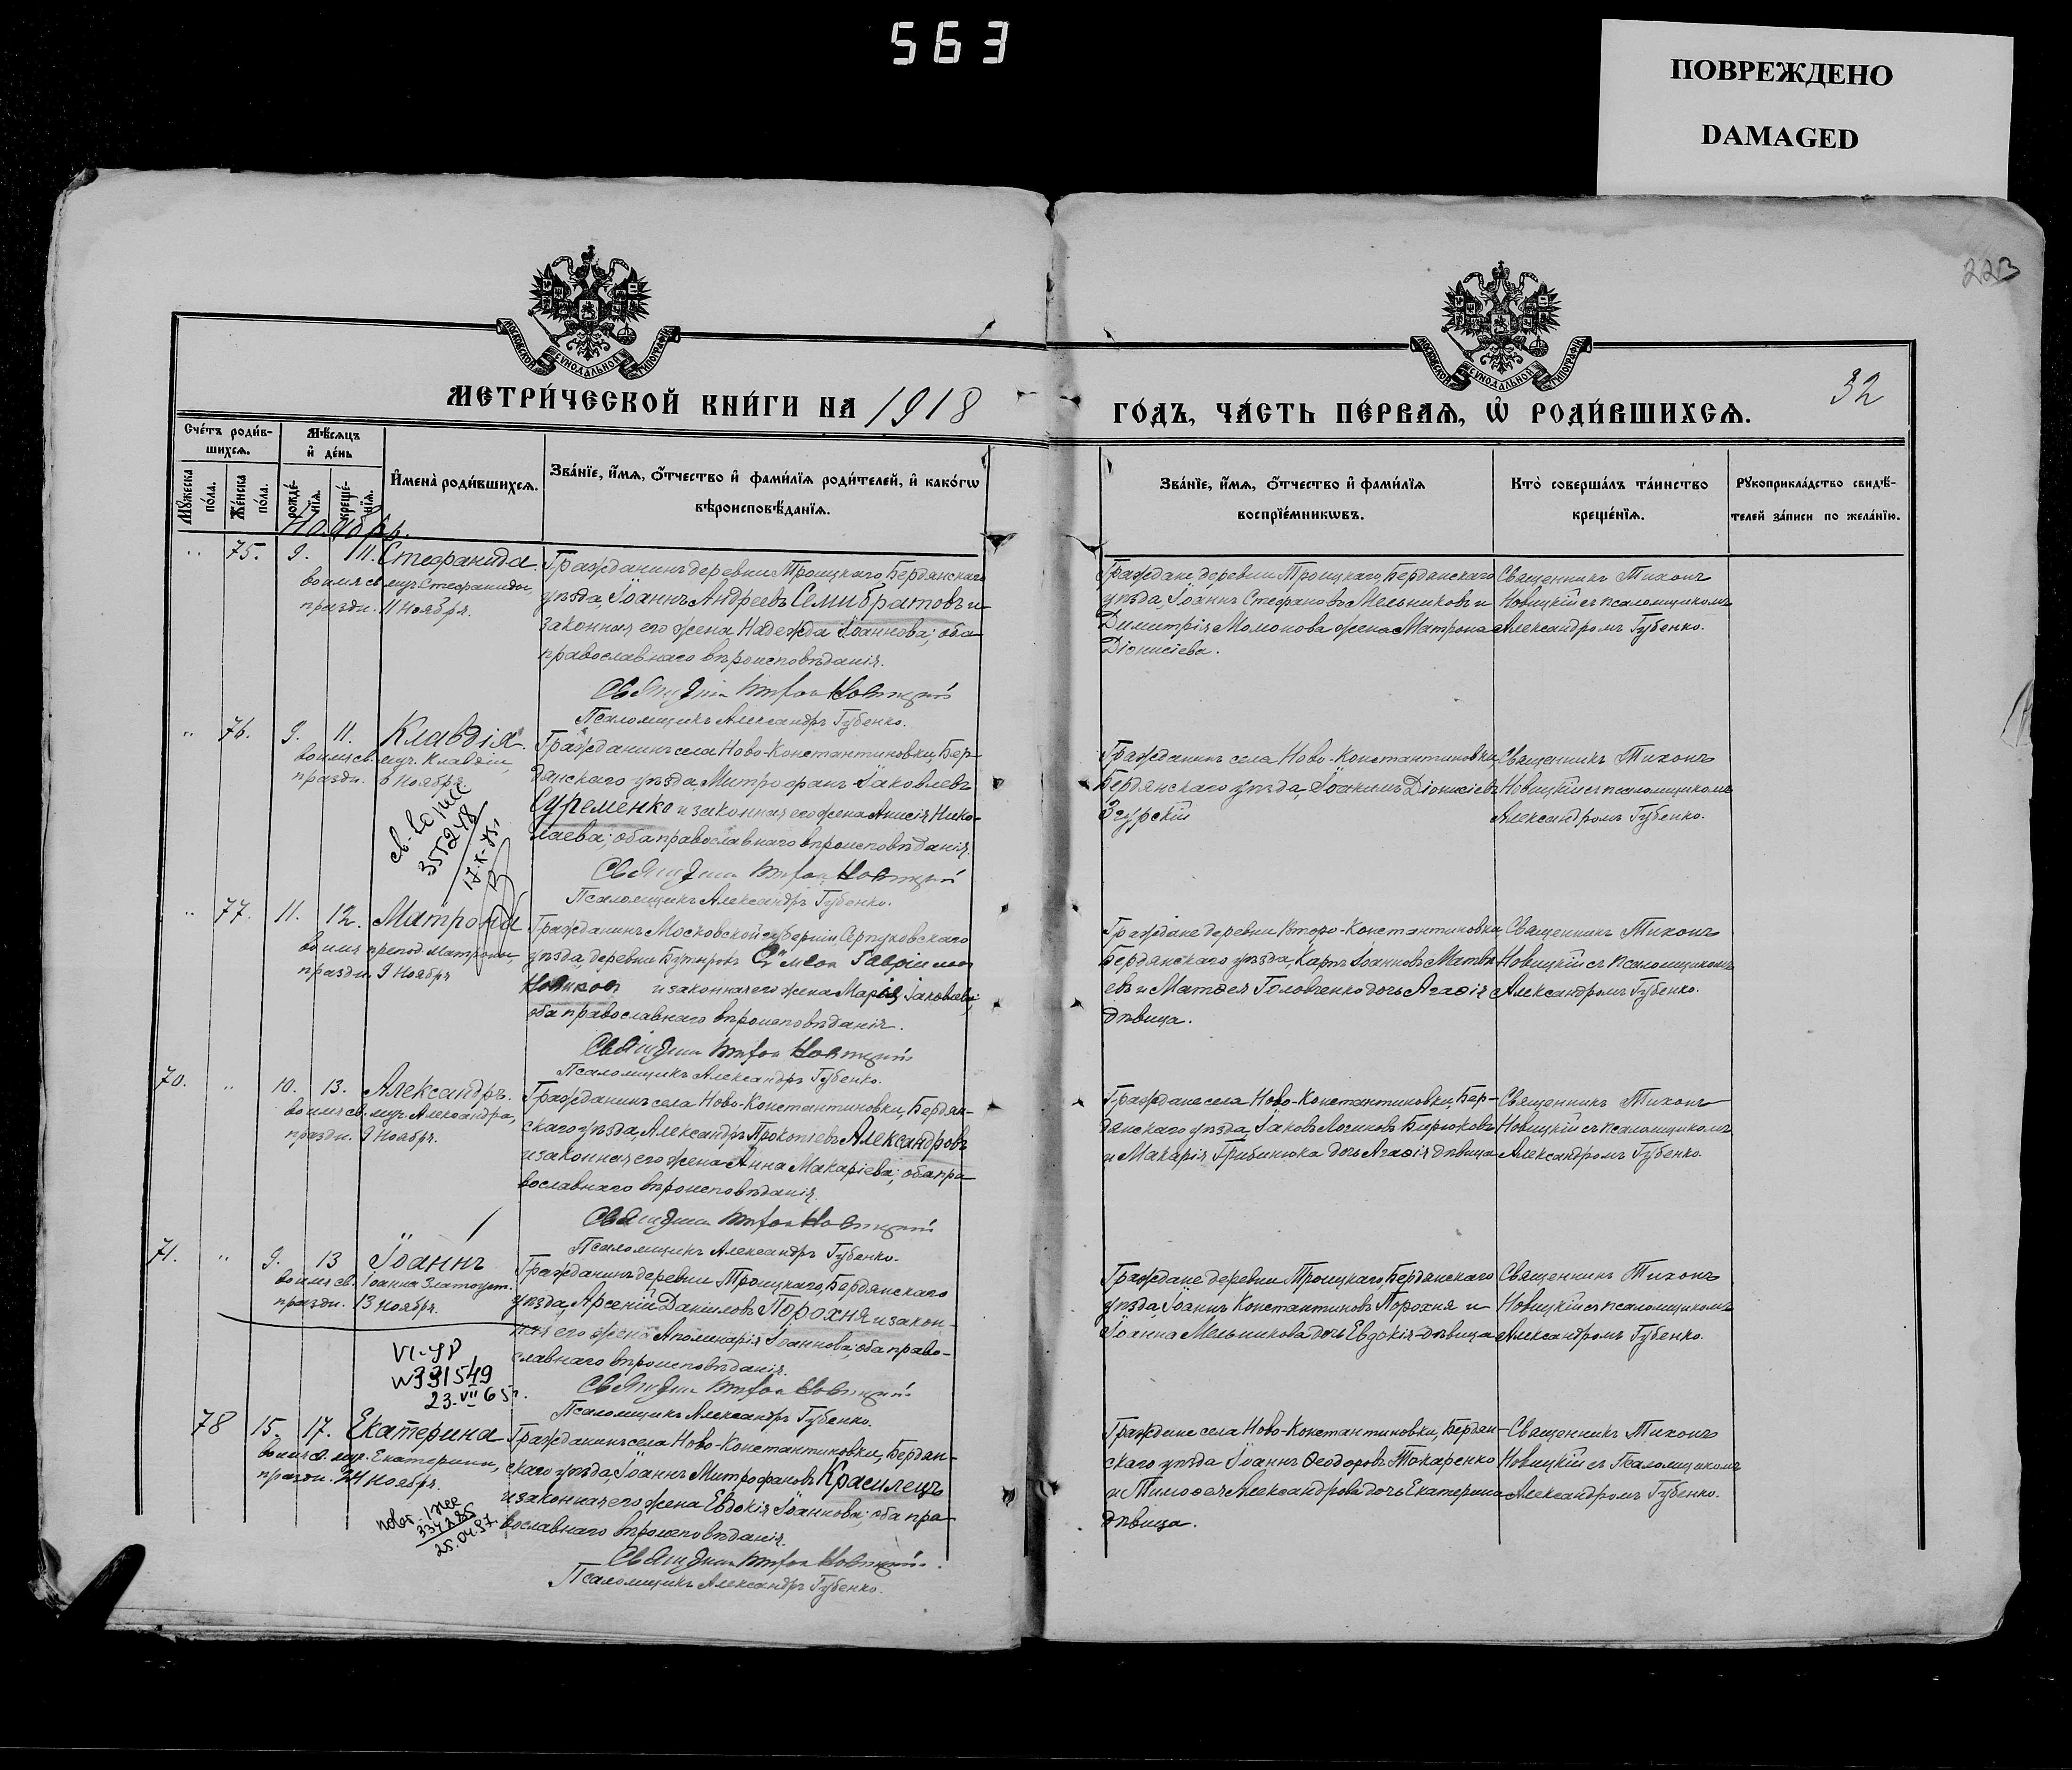 563
ПОВРЕЖДЕНО
DAMAGED
223
32
МОСКОВСКОЙ СУНОДАЛЬНОЙ ТИПОГРАФІИ
МОСКОВСКОЙ СУНОДАЛЬНОЙ ТИПОГРАФІИ
МЕТРИ́ЧЕСКОЙ КНИ́ГИ НА 1918
ГО́ДЪ, ЧА́СТЬ ПЕ́РВАѦ, Ѡ҆ РОДИ́ВШИХСѦ.
Сче́тъ роди́вшихсѧ.
Мꙋ́жеска по́ла.
Же́нска по́ла.
Мѣ́сѧцъ и҆ де́нь
рожде́нїѧ.
креще́нїѧ.
И҆мена̀ роди́вшихсѧ.
Зва́нїе, и҆́мѧ, ѻ҆́тчество и҆ фами́лїѧ роди́телей, и҆ како́гѡ
вѣроисповѣ́данїѧ.
Зва́нїе, и҆́мѧ, ѻ҆́тчество и҆ фами́лїѧ
воспрїе́мникѡвъ.
Кто̀ соверша́лъ та́инство
креще́нїѧ.
Рꙋкоприкла́дство свидѣ́-
телей за́писи по жела́нїю.
Ноябрь.
" 75. 9. 11. Стефанида
во имя св. муч. Стефаниды,
праздн. 11 Ноября.
Гражданинъ деревни Троицкаго, Бердянскаго
уѣзда, Іоаннъ Андреевъ Семибратовъ и
законная его жена Надежда Іоаннова; оба
православнаго вѣроисповѣданія.
Священникъ Тихон Новицкий
Псаломщикъ Александръ Губенко.
Граждане деревни Троицкаго, Бердянскаго
уѣзда, Іоаннъ Стефановъ Мельниковъ и
Димитрія Момонова жена Матрона
Діонисіева.
Священникъ Тихонъ
Новицкій съ псаломщикомъ
Александромъ Губенко.
" 76. 9. 11. Клавдія.
во имя св. муч. Клавдіи,
праздн. 6 Ноября
355248
Гражданинъ села Ново-Константиновки, Бер-
дянскаго уѣзда, Митрофанъ Іаковлевъ
Суременко и законная его жена Анисія Нико-
лаева; оба православнаго вѣроисповѣданія.
Священникъ Тихон Новицкий
Псаломщикъ Александръ Губенко.
Гражданинъ села Ново-Константиновки
Бердянскаго уѣзда, Іоакимъ Діонисіевъ
Згурскій
Священникъ Тихонъ
Новицкій съ псаломщикомъ
Александромъ Губенко.
" 77. 11. 12. Матрона
во имя препод. Матроны,
праздн. 9 Ноября
Гражданинъ Московской губерніи, Серпуховскаго
уѣзда, деревни Бутырокъ Симеон Гавріилов
Новиков и законная его жена Марія Іаковлева;
оба православнаго вѣроисповѣданія.
Священникъ Тихон Новицкий
Псаломщикъ Александръ Губенко.
Граждане деревни Второ-Константиновки
Бердянскаго уѣзда, Карпъ Іоанновъ Матвѣ
евъ и Матѳея Головченко дочь Агаѳія
дѣвица.
Священникъ Тихонъ
Новицкій съ псаломщикомъ
Александромъ Губенко.
70. " 10. 13. Александръ.
во имя св. муч. Александра,
праздн. 9 Ноября.
Гражданинъ села Ново-Константиновки, Бердян-
скаго уѣзда, Александръ Прокопіевъ Александровъ
и законная его жена Анна Макаріева; оба пра
вославнаго вѣроисповѣданія.
Священникъ Тихон Новицкий
Псаломщикъ Александръ Губенко.
Граждане села Ново-Константиновки, Бер-
дянскаго уѣзда, Іаковъ Логиновъ Бирюковъ
и Макарія Грибинюка дочь Агаѳія дѣвица
Священникъ Тихонъ
Новицкій съ псаломщикомъ
Александромъ Губенко.
71. " 9. 13 Іоаннъ
во имя св. Іоанна Златоуст.
праздн. 13 Ноября.
331549
23.VII 65г.
Гражданинъ деревни Троицкаго, Бердянскаго
уѣзда, Арсеній Даніиловъ Порохня и закон-
ная его жена Аполинарія Іоаннова; оба право-
славнаго вѣроисповѣданія.
Священникъ Тихон Новицкий
Псаломщикъ Александръ Губенко.
Граждане деревни Троицкаго, Бердянскаго
уѣзда, Іоаннъ Константиновъ Порохня и
Іоанна Мельникова дочь Евдокія дѣвица
Священникъ Тихонъ
Новицкій съ псаломщикомъ
Александромъ Губенко.
78 15. 17. Екатерина
во имя св. муч. Екатерины,
праздн. 24 Ноября.
25.04.87
Гражданинъ села Ново-Константиновки, Бердян-
скаго уѣзда, Іоаннъ Митрофановъ Красилецъ
и законная его жена Евдокія Іоаннова; оба пра-
вославнаго вѣроисповѣданія.
Священникъ Тихон Новицкий
Псаломщикъ Александръ Губенко.
Граждане села Ново-Константиновки, Бердян-
скаго уѣзда Іоаннъ Ѳеодоровъ Токаренко
и Тимоѳея Александрова дочь Екатерина
дѣвица.
Священникъ Тихонъ
Новицкій съ Псаломщикомъ
Александромъ Губенко.